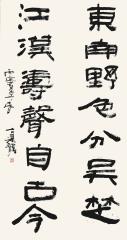 東南野色分吳楚
江漢濤聲自古今